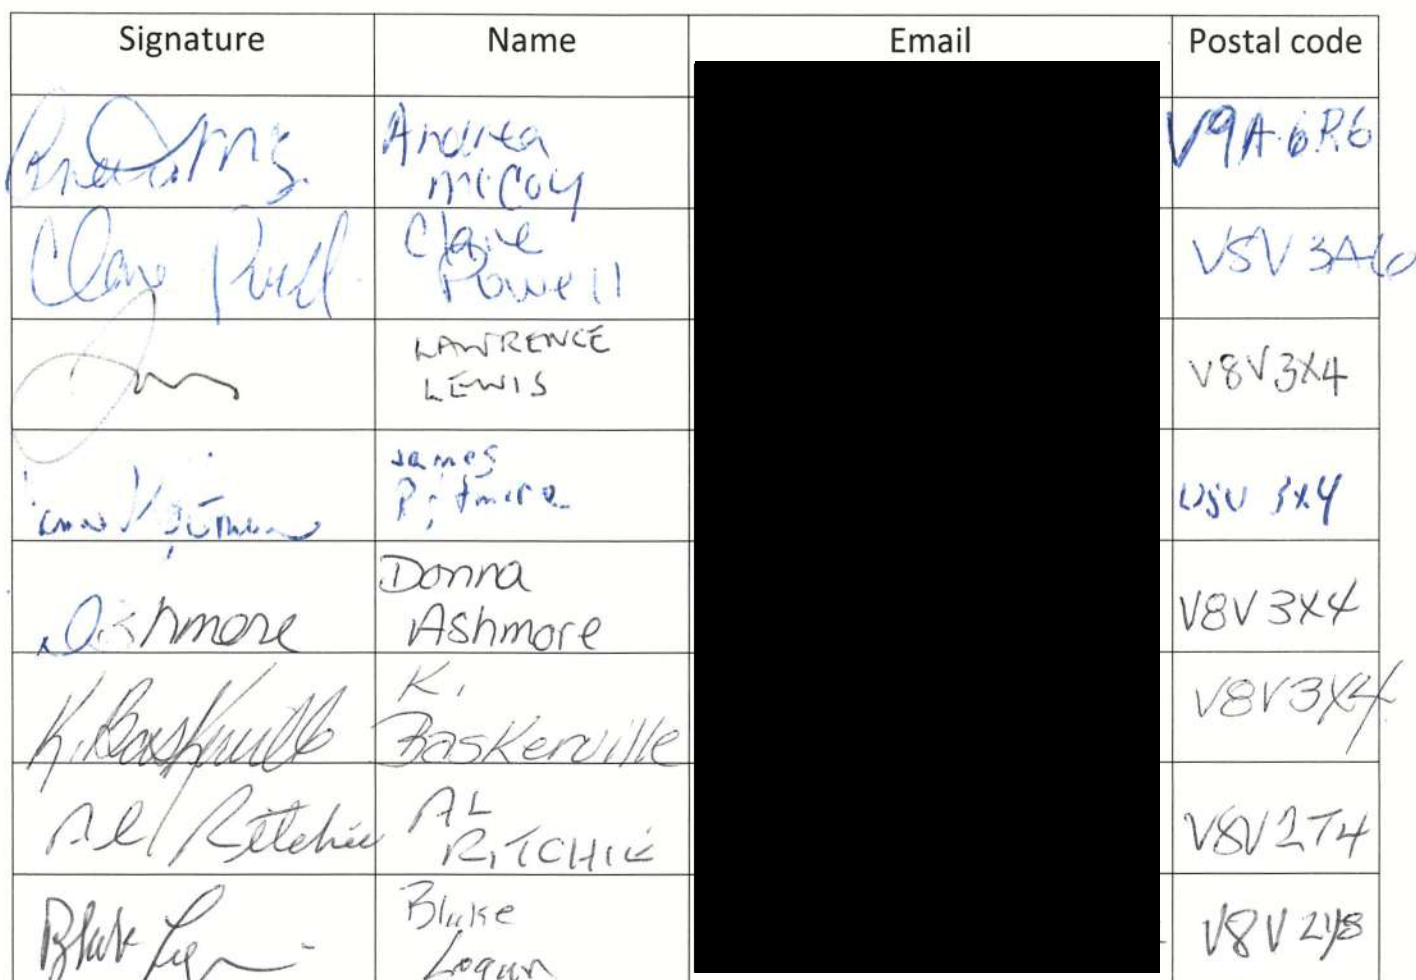 Signature Name Email Postal code
Andrea
McCoy
V9A 6R6
Claire Powell
Claire
Powell
V8V 3A6
LAWRENCE
LEWIS
V8V3X4
James
V8V 3X4
DAshmore
Donna
Ashmore
V8V 3X4
K. Baskerville
K.
Baskerville
V8V3X4
Al Ritchie
AL
RITCHIE
V8V2T4
Blake
Logan
V8V 2Y8